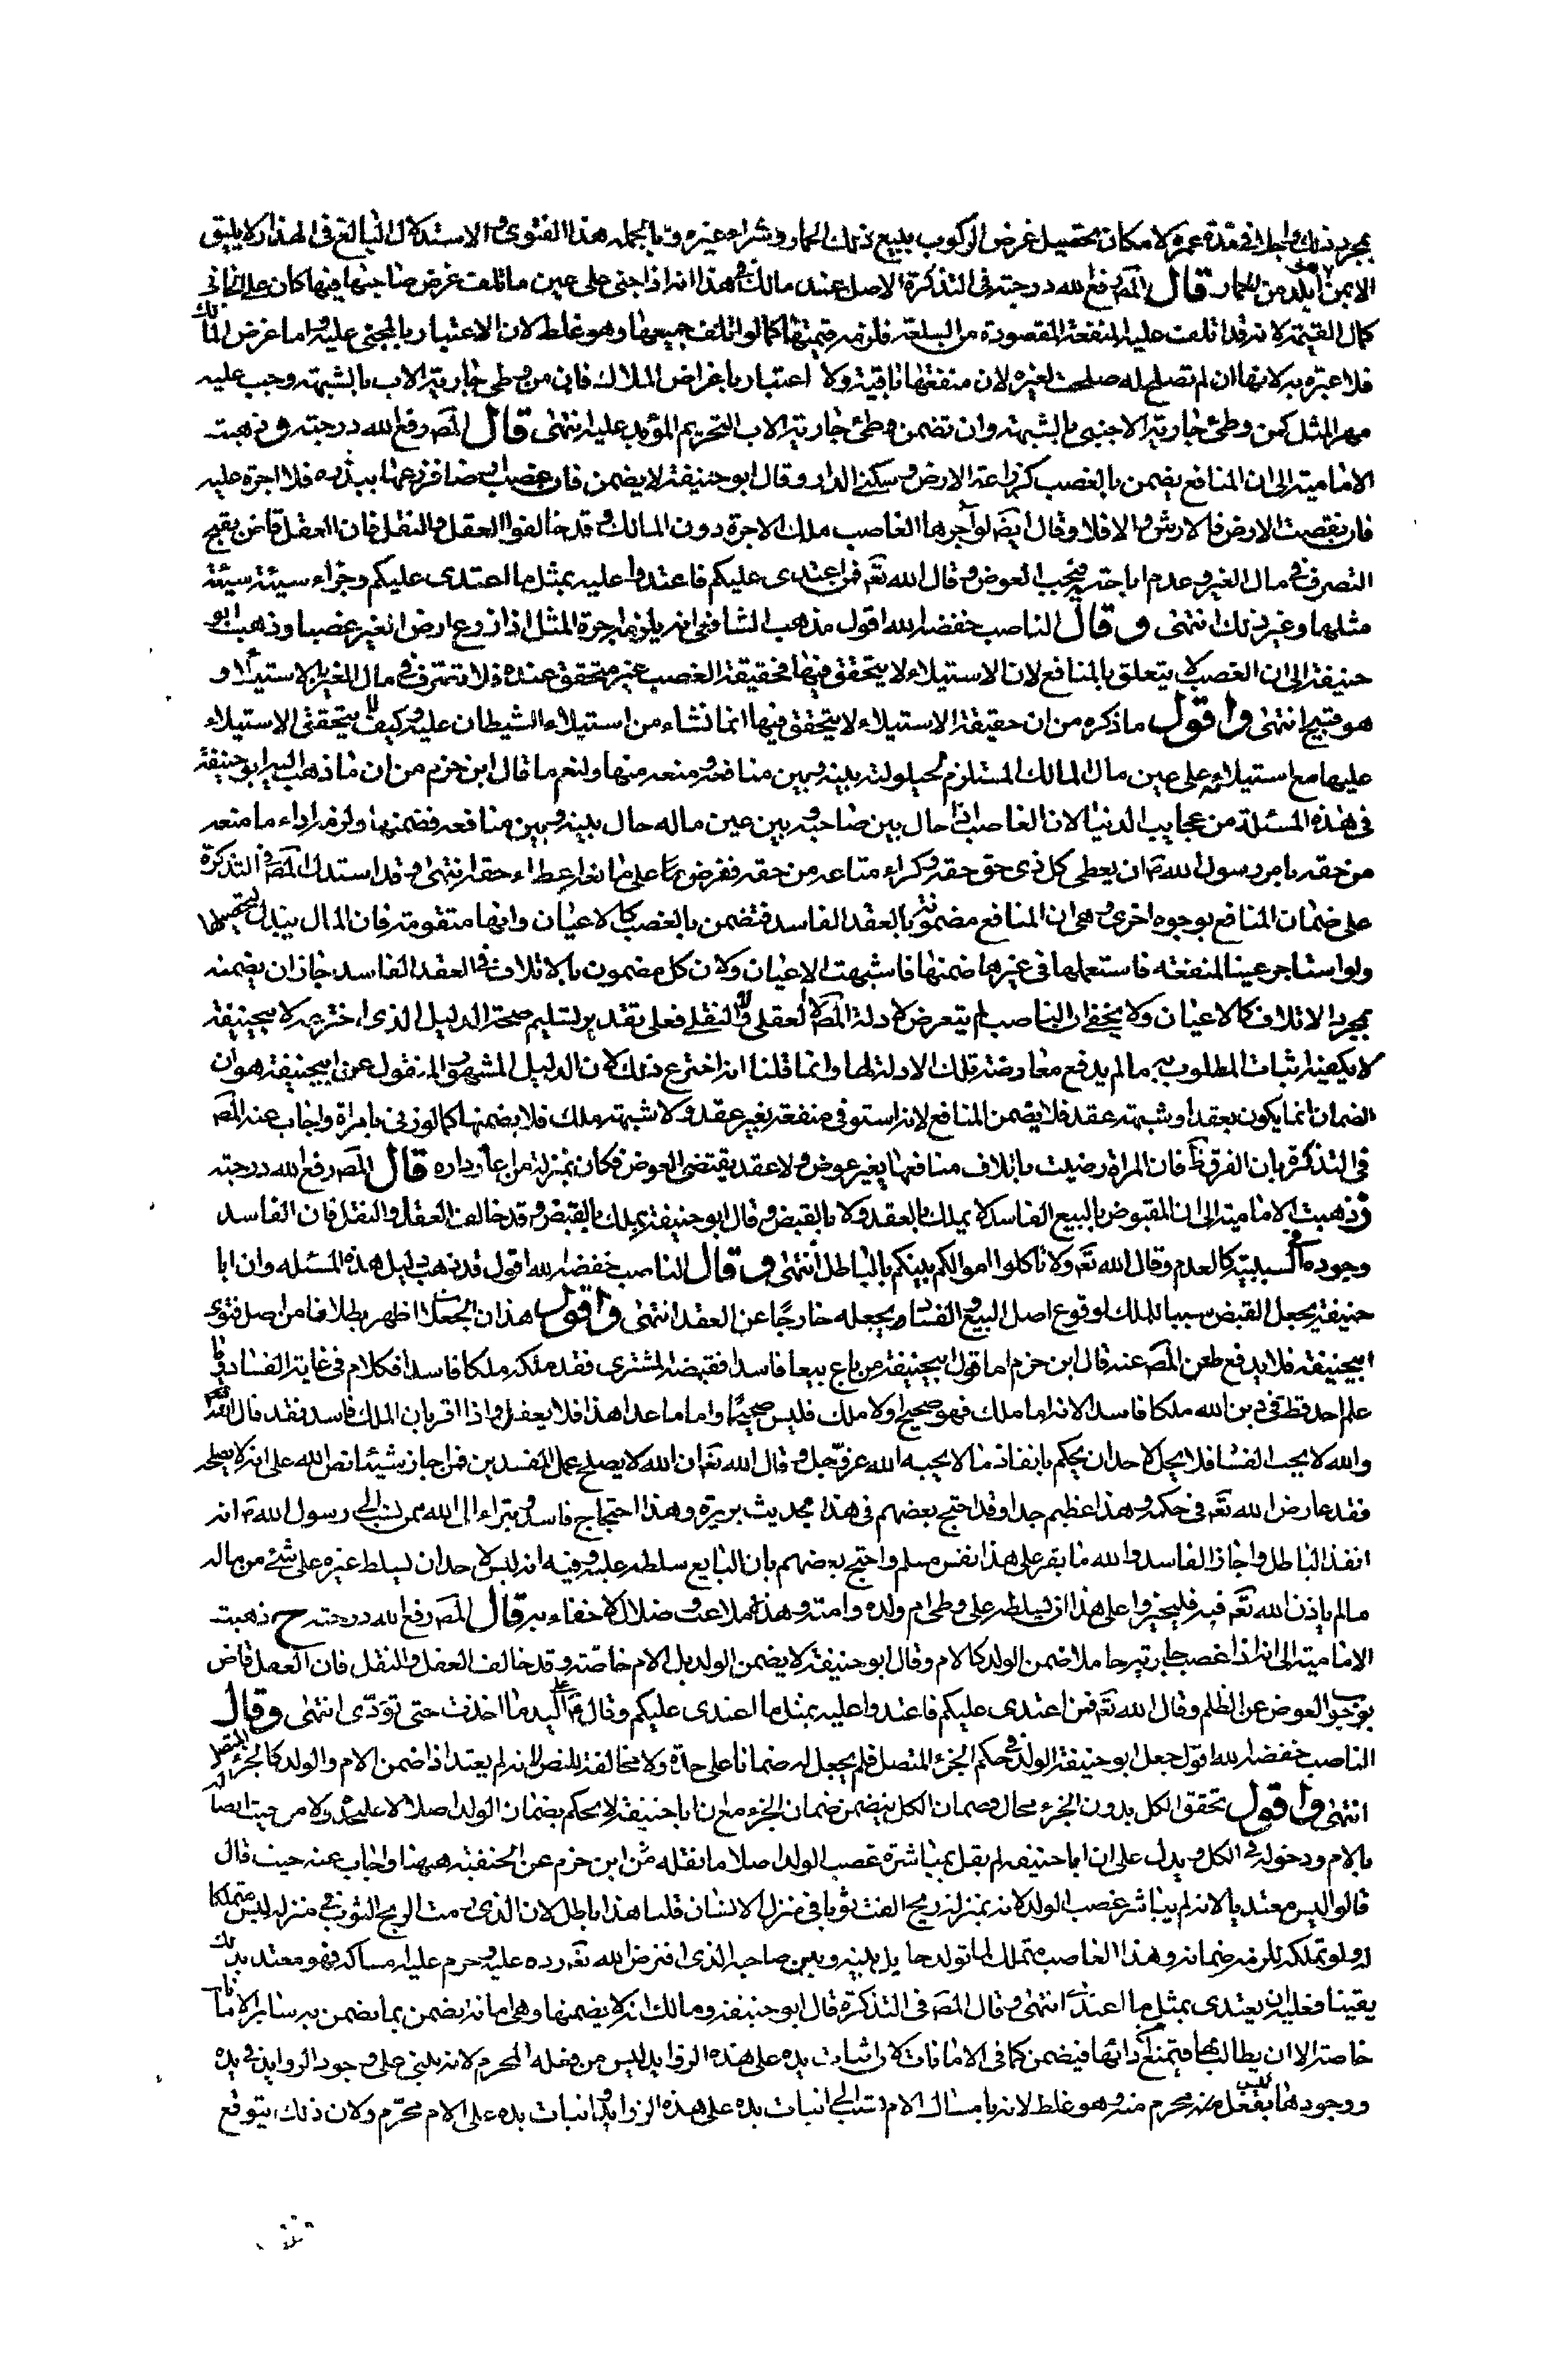 بمجرد ذلك واجبا في مدة عمره لامكان تحصيل غرض الركوب ببيع ذلك الحمار وشراء غيره وبالجمله هذا الفتوى والاستدلال البالغ في الهذار لا يليق
الا بمن هو ابلد من الحمار قال المص رفع الله درجته في التذكرة الاصل عند مالك في هذا انه اذا جنى على عين ما تلفت غرض صاحبها فيها كان على الجاني
كمال القيمة لانه قد اتلفت عليه المنفعة المقصودة من السلعة فلزمه قيمتها كما لو اتلف جميعها وهو غلط لان الاعتبار بالمجني عليه واما غرض المالك
فلا عبرة به لانها ان لم تصلح له صلحت لغيره لان منفعتها باقية ولا اعتبار باغراض الملاك فان من وطى جارية الاب بالشبهة وجب عليه
مهر المثل كمن وطئ جارية الاجنبي بالشبهة وان تضمن وطئ جارية الاب التحريم المؤبد عليه انتهى قال المص رفع الله درجته و ذهبت
الامامية الى ان المنافع يضمن بالغصب كزراعة الارض وسكنى الدار وقال ابو حنيفة لا يضمن فان غصب ارضا فزرعها ببذره فلا اجرة عليه
فان نقصت الارض فالارش والا فلا وقال ايضا لو آجرها الغاصب ملك الاجرة دون المالك وقد خالفوا العقل والنقل فان العقل قاض بقبح
التصرف في مال الغير وعدم اباحته فيجب العوض وقال الله تع فمن اعتدى عليكم فاعتدوا عليه بمثل ما اعتدى عليكم وجزاء سيئة سيئة
مثلها وغير ذلك انتهى و قال الناصب خفضه الله اقول مذهب الشافعي انه يلزمه اجرة المثل اذا زرع ارض الغير غصبا وذهب ابو
حنيفة الى ان الغصب لا يتعلق بالمنافع لان الاستيلاء لا يتحقق فيها فحقيقة الغصب غير متحقق عنده فلا تصرف في مال الغير بالاستيلاء و
هو قبيح انتهى واقول ما ذكره من ان حقيقة الاستيلاء لا يتحقق فيها انما نشاء من استيلاء الشيطان عليه وكيف لا يتحقق الاستيلاء
عليها مع استيلائه على عين مال المالك المستلزم لحيلولته بينه وبين منافعه ومنعه منها ولنعم ما قال ابن حزم من ان ما ذهب اليه ابو حنيفة
في هذه المسئلة من عجايب الدنيا لان الغاصب اذا حال بين صاحبه وبين عين ماله حال بينه وبين منافعه فضمنها ولزمه اداء ما منعه
من حقه بامر رسول الله ص ان يعطى كل ذي حق حقه وكراء متاعه من حقه ففرض على مانعه اعطاء حقه انتهى وقد استدل المص في التذكرة
على ضمان المنافع بوجوه اخرى وهي ان المنافع مضمونة بالعقد الفاسد فتضمن بالغصب كالاعيان وانها متقومة فان المال يبذل لتحصيلها
ولو استاجر عينا لمنفعة فاستعملها في غيرها ضمنها فاشبهت الاعيان ولان كل مضمون بالاتلاف في العقد الفاسد جاز ان يضمنه
بمجرد الاتلاف كالاعيان ولا يخفى ان الناصب لم يتعرض لادلة المص لا العقلي ولا النقلي فعلى تقدير تسليم صحة الدليل الذي اخترعه لابيحنيفة
لا يكفينه اثبات المطلوب به ما لم يدفع معارضة تلك الادلة لها وانما قلنا انه اخترع ذلك لان الدليل المشهور المنقول عن ابيحنيفة هو ان
الضمان انما يكون بعقد او شبهة عقد فلا يضمن المنافع لانه استوفى منفعة بغير عقد ولا شبهة ملك فلا يضمنها كما لو زنى بامراة واجاب عنه المص
في التذكرة بان الفرق ظ فان المراة رضيت باتلاف منافعها بغير عوض ولا عقد يقتضى العوض فكان بمنزلة من اعار داره قال المص رفع الله درجته
و ذهبت الامامية الى ان المقبوض بالبيع الفاسد لا يملك بالعقد ولا بالقبض وقال ابو حنيفة يملك بالقبض وقد خالف العقل والنقل فان الفاسد
وجوده في السببية كالعدم وقال الله تع ولا تاكلوا اموالكم بينكم بالباطل انتهى و قال الناصب خفضه الله اقول قد ذهب دليل هذه المسئله وان ابا
حنيفة يجعل القبض سببا للملك لوقوع اصل البيع والفساد يجعله خارجا عن العقد انتهى واقول هذان الجعلان اظهر بطلانا من اصل فتوى
ابيحنيفة فلا يدفع طعن المص عنه قال ابن حزم اما قول ابيحنيفة من باع بيعا فاسدا فقبضه المشترى فقد ملكه ملكا فاسدا فكلام في غاية الفساد وما
علم احد قط في دين الله ملكا فاسدا لانه اما ملك فهو صحيح اولا ملك فليس صحيحا واما ما عدا هذا فلا يعقل واذا اقر بان الملك فاسد فقد قال الله تع
والله لا يحب الفساد فلا يحل لاحد ان يحكم بانفاذ ما لا يحبه الله عز وجل وقال الله تع ان الله لا يصلح عمل المفسدين فمن اجاز شيئا نص الله على انه لا يصلحه
فقد عارض الله تع في حكمه وهذا عظيم جدا وقد احتج بعضهم في هذا بحديث بريرة وهذا احتجاج فاسد ونبراء الى الله ممن نسب الى رسول الله ص انه
انفذ الباطل واجاز الفاسد والله ما يقر على هذا نفس مسلم واحتج بعضهم بان البايع سلطه عليه وفيه انه ليس لاحد ان يسلط غيره على شئ من ماله
ما لم ياذن الله تع فيه فليجيزوا على هذا ان يسلطه على وطى ام ولده وامته وهذه ملاعب وضلال لا خفاء به قال المص رفع الله درجته ح ذهبت
الامامية الى انه اذا غصب جارية حاملا ضمن الولد كالام وقال ابو حنيفة لا يضمن الولد بل الام خاصة وقد خالف العقل والنقل فان العقل قاض
بوجوب العوض عن الظلم وقال الله تع فمن اعتدى عليكم فاعتدوا عليه بمثل ما اعتدى عليكم وقال ص على اليد ما اخذت حتى تؤدى انتهى وقال
الناصب خفضه الله اقول جعل ابو حنيفة الولد في حكم الجزء المتصل فلم يجعل له ضمانا على حدة ولا مخالفة للنص لانه لم يعتد اذا ضمن الام والولد كالجزء المتصل
انتهى واقول تحقق الكل بدون الجزء محال وضمان الكل يتضمن ضمان الجزء مع ان ابا حنيفة لا يحكم بضمان الولد اصلا لا على حدة ولا من حيث اتصاله
بالام ودخوله في الكل ويدل على ان ابا حنيفه لم يقل بمباشرة غصب الولد اصلا ما نقله ابن حزم عن الحنفية ههنا واجاب عنه حيث قال
قالوا ليس معتديا لانه لم يباشر غصب الولد لانه بمنزلة ريح القت ثوبا في منزل الانسان قلنا هذا باطل لان الذي رمت الريح الثوب في منزله ليس متملكا
له ولو تملكه للزمه ضمانه وهذا الغاصب متملك لما تولد حايل بينه وبين صاحبه الذي افترض الله تع رده عليه وحرم عليه امساكه فهو معتد بذلك
يقينا فعليه ان يعتدى بمثل ما اعتدى انتهى وقال المص في التذكرة قال ابو حنيفة ومالك انه لا يضمنها وهى امانة يضمن بما يضمن به ساير الامانات
خاصة الا ان يطالب بها فيمتنع من ادائها فيضمن كما في الامانات لان اثبات يده على هذه الزوايد ليس من فعله المحرم لانه يبنى على وجود الزوايد في يده
ووجودها ليس بفعل منه محرم منه وهو غلط لانه بامساك الام تسبب الى اثبات يده على هذه الزوايد واثبات يده على الام محرم ولان ذلك يتوقع